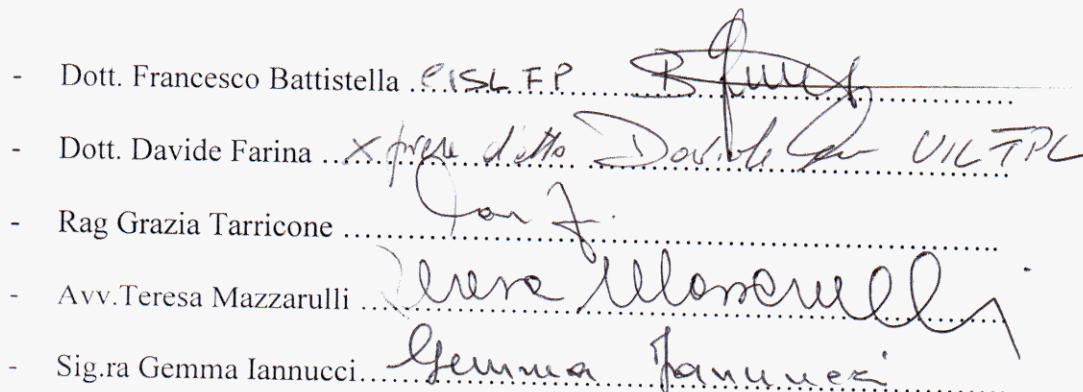 - Dott. Francesco Battistella CISL FP
- Dott. Davide Farina x presa d'atto Davide UIL FPL
- Rag Grazia Tarricone
- Avv.Teresa Mazzarulli Teresa Mazzarulli
- Sig.ra Gemma Iannucci Gemma Iannucci